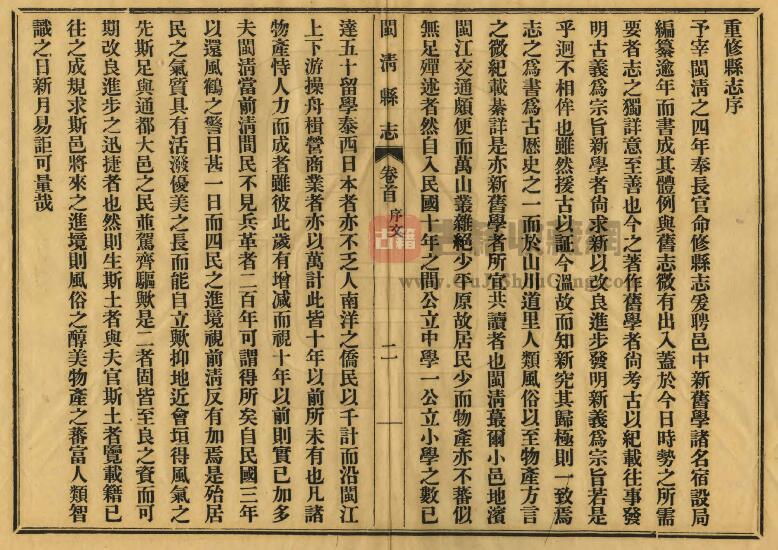 重修縣志序
予宰閩清之四年奉長官命修縣志爰聘邑中新舊學諸名宿設局
編纂逾年而書成其體例與舊志微有出入蓋於今日時勢之所需
要者志之獨詳意至善也今之著作舊學者尚考古以紀載往事發
明古義爲宗旨新學者尚求新以改良進步發明新義爲宗旨若是
乎迥不相侔也雖然援古以証今溫故而知新究其歸極則一致焉
志之爲書爲古歷史之一而於山川道里人類風俗以至物產方言
之微紀載綦詳是亦新舊學者所宜共讀者也閩清蕞爾小邑地濱
閩江交通頗便而萬山叢雜絕少平原故居民少而物產亦不蕃似
無足殫述者然自入民國十年之間公立中學一公立小學之數已
閩清縣志
卷首 序文
二
達五十留學泰西日本者亦不乏人南洋之僑民以千計而沿閩江
上下游操舟楫營商業者亦以萬計此皆十年以前所未有也凡諸
物產恃人力而成者雖彼此歲有增減而視十年以前則實已加多
夫閩清當前清間民不見兵革者二百年可謂得所矣自民國三年
以還風鶴之警日甚一日而四民之進境視前清反有加焉是殆居
民之氣質具有活潑優美之長而能自立歟抑地近會垣得風氣之
先斯足與通都大邑之民並駕齊驅歟是二者固皆至良之資而可
期改良進步之迅捷者也然則生斯土者與夫官斯土者覽載籍已
往之成規求斯邑將來之進境則風俗之醇美物產之蕃富人類智
識之日新月易詎可量哉
古籍收藏網
www.GuJiShouCang.com